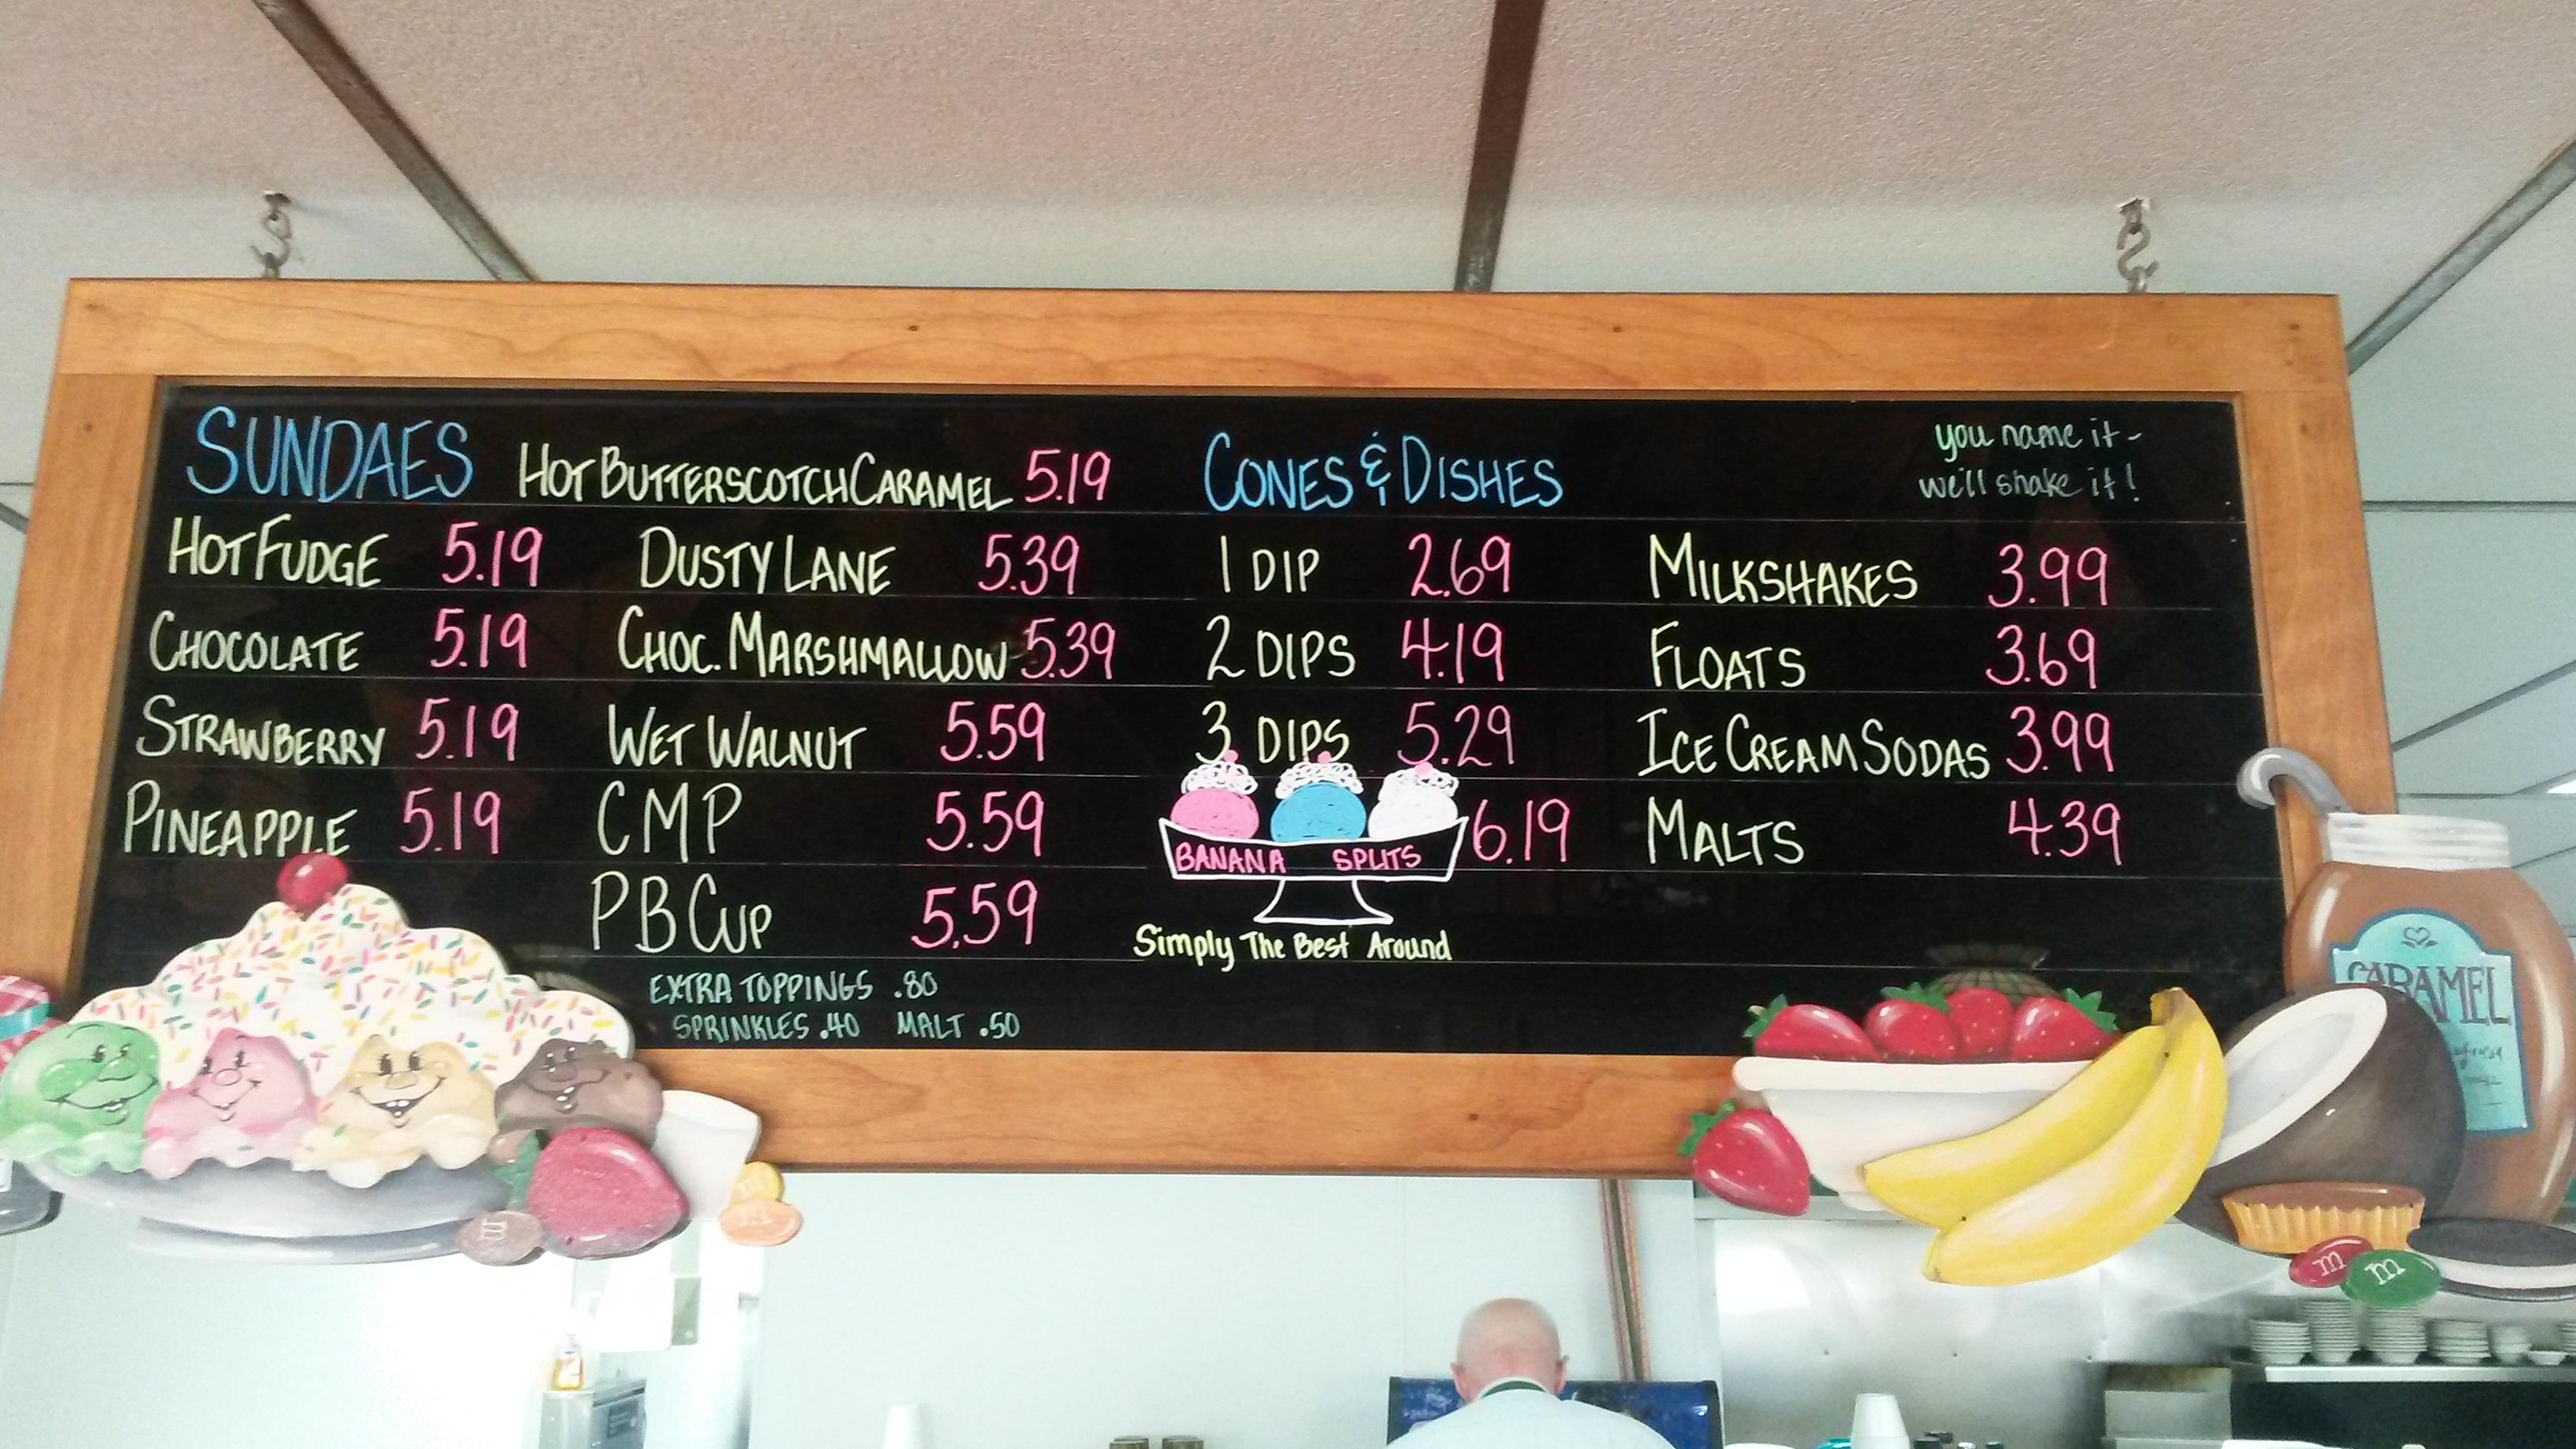 SUNDAES
HOT FUDGE 5.19
CHOCOLATE 5.19
STRAWBERRY 5.19
PINEAPPLE 5.19
HOT BUTTERSCOTCH CARAMEL 5.19
DUSTY LANE 5.39
CHOC. MARSHMALLOW 5.39
WET WALNUT 5.59
CMP 5.59
PB CUP 5.59
EXTRA TOPPINGS .80
SPRINKLES .40 MALT .50
CONES & DISHES
1 DIP 2.69
2 DIPS 4.19
3 DIPS 5.29
BANANA SPLITS 6.19
Simply The Best Around
you name it -
we'll shake it!
MILKSHAKES 3.99
FLOATS 3.69
ICE CREAM SODAS 3.99
MALTS 4.39
CARAMEL
m
m
m
m
m